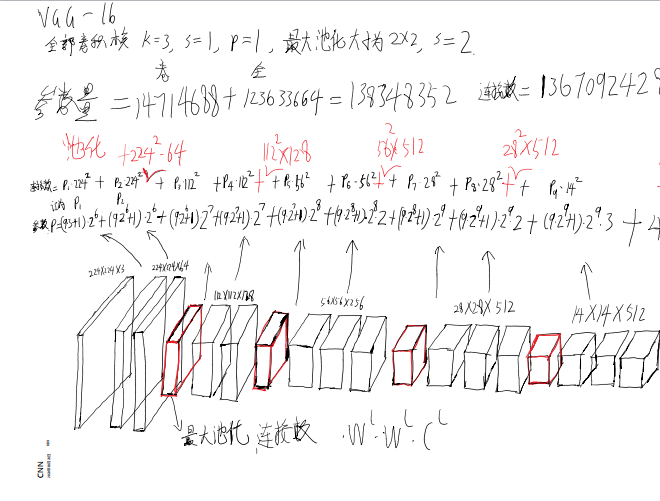 VGG-16
全部卷积核 K=3, S=1, P=1, 最大池化大小为 2×2, S=2.
卷 全
参数量 = 14714688 + 123633664 = 138348352 连接数 = 1367092428
池化 +224²·64 112²×128 56²×512 28²×512
连接数 = P₁·224² + P₂·224² + P₃·112² + P₄·112² + P₅·56² + P₆·56² + P₇·28² + P₈·28² + P₉·14²
记为 P₁ P₂
参数 P=(9·3+1)·2⁶+(9·2⁶+1)·2⁶+(9·2⁶+1)·2⁷+(9·2⁷+1)·2⁷+(9·2⁷+1)·2⁸+(9·2⁸+1)·2⁸·2+(9·2⁸+1)·2⁹+(9·2⁹+1)·2⁹·2+(9·2⁹+1)·2⁹·3 +
224×224×3 224×224×64
112×112×128 56×56×256 28×28×512 14×14×512
最大池化 连接数 ·Wᴸ·Wᴸ·Cᴸ
CNN